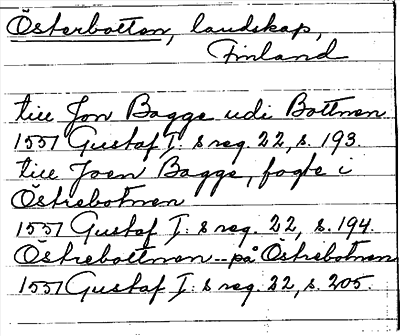 Österbotten, landskap,
Finland
till Jon Bagge udi Bottnen
1551 Gustaf I: s reg. 22, s. 193.
till Joen Bagge, fogte i
Östrebotnen
1551 Gustaf I: s reg. 22, s. 194.
Östrebottnen -- på Östrebotnen
1551 Gustaf I: s reg. 22, s. 205.